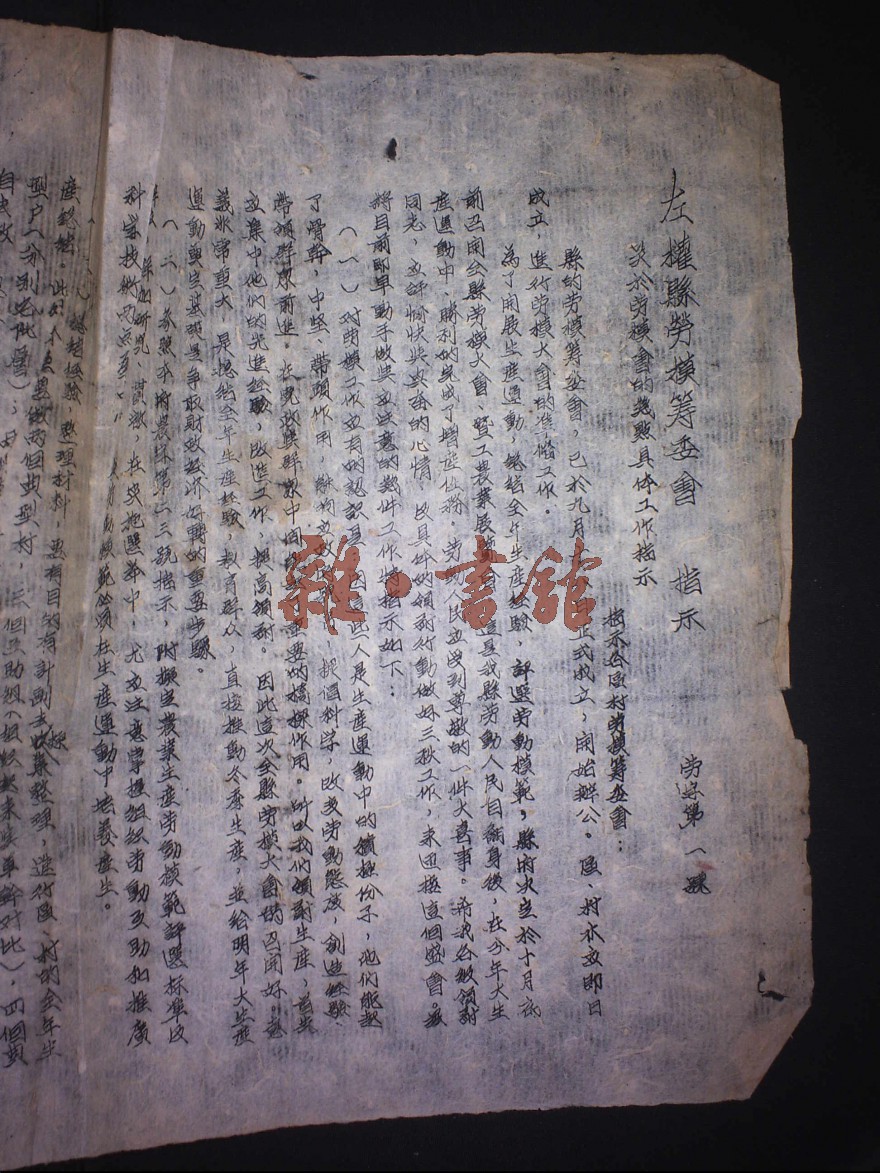 左權縣勞模籌委會 指示
勞字第一號
关於劳模會的幾點具体工作指示
指示各區村劳模籌委會：
縣的劳模籌委會，已於九月 日正式成立，開始辦公。區、村亦应即日
成立，進行劳模大會的准備工作。
為了開展生產運動，總結全年生產經驗，評選劳動模範，縣府决定於十月底
前召開全縣劳模大會、暨工農業展 這是我縣劳動人民自翻身後，在今年大生
產運動中、勝利的完成了增產任務，劳動人民应受到尊敬的一件大喜事。希望各級領導
同志，应以愉快 的心情，以具体的領導行動做好三秋工作，来迎接這個盛會。茲
將目前即早動手做些应注意的幾件工作特指示如下：
（一）对劳模工作应有的認識 因 些人是生產運動中的積極份子，他們能起
了骨幹，中堅、帶頭作用， 提倡科学，改变劳動態度，創造經驗、
帶領群眾前進。在 群眾中 重要的橋樑作用。所以我們領導生產，首先
应集中他們的先進經驗，改進工作，提高領導。因此這次全縣劳模大會 召開好。意
義非常重大，是總結全年生產經驗，教育群众，直接推動冬季生產，並給明年大生產
運動奠定基礎是争取財政經济好轉的重要步驟。
（二）参照本府農林第三三號指示，附擬定農業生產劳動模範評選标準及
研究，貫澈，在实施照举中，尤应注意掌握組织劳動互助和推廣
科学技術两点 模範必須在生產運動中培養產生。
總結經驗，整理材料，要有目的有計劃去收集整理，進行區、村的全年生
產總結。 做两個典型村，三個互助組（組织起来与单幹对比），四個典
型户（分别 ），
自去收
雜·書館